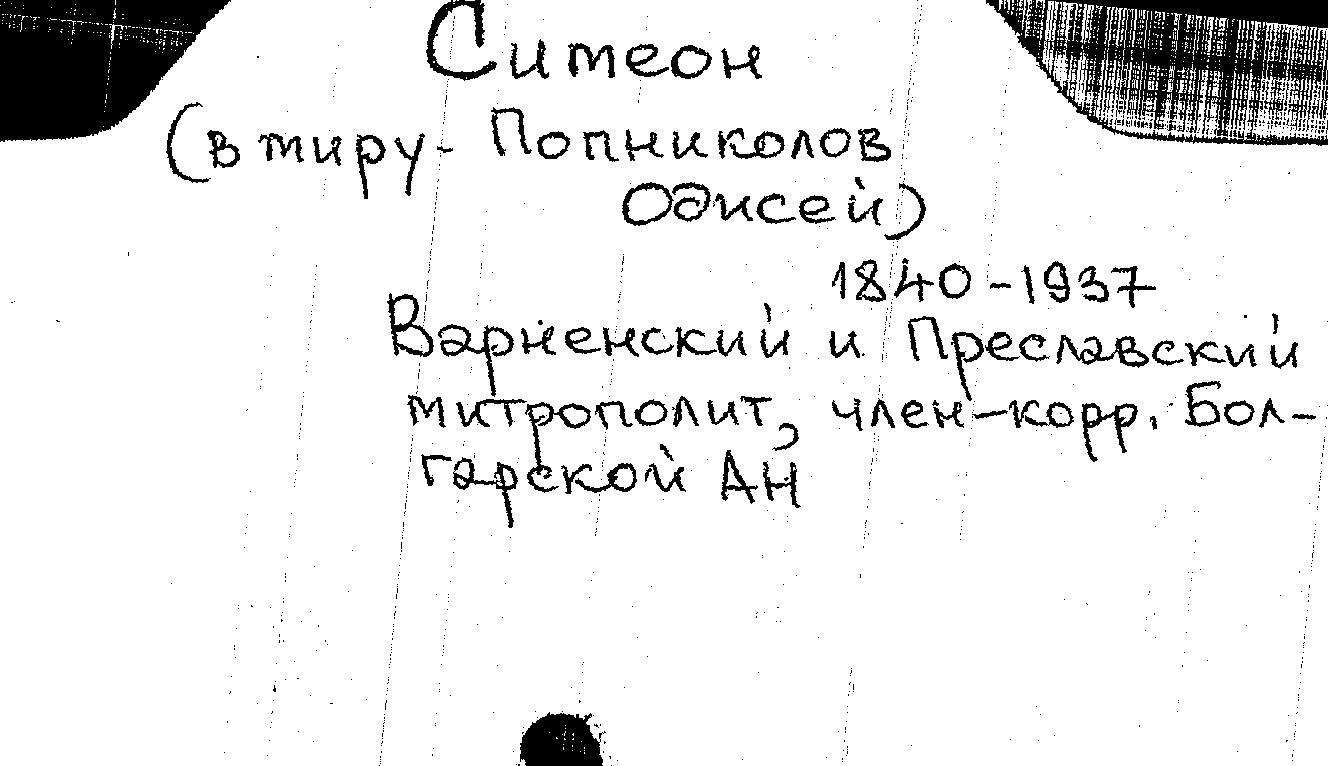 Симеон
(в миру - Попниколов
Одисей)
1840-1937
Варненский и Преславский
митрополит, член-корр. Бол-
гарской АН